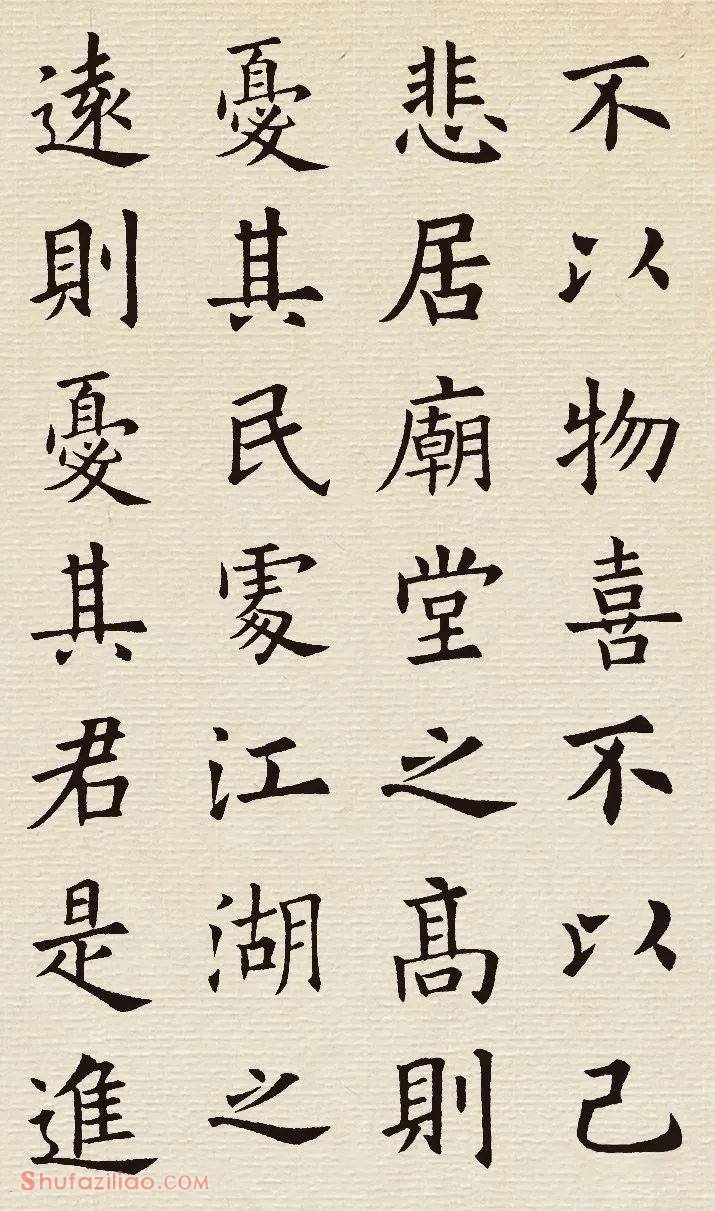 不以物喜不以己
悲居廟堂之髙則
憂其民處江湖之
遠則憂其君是進
Shufaziliao.COM